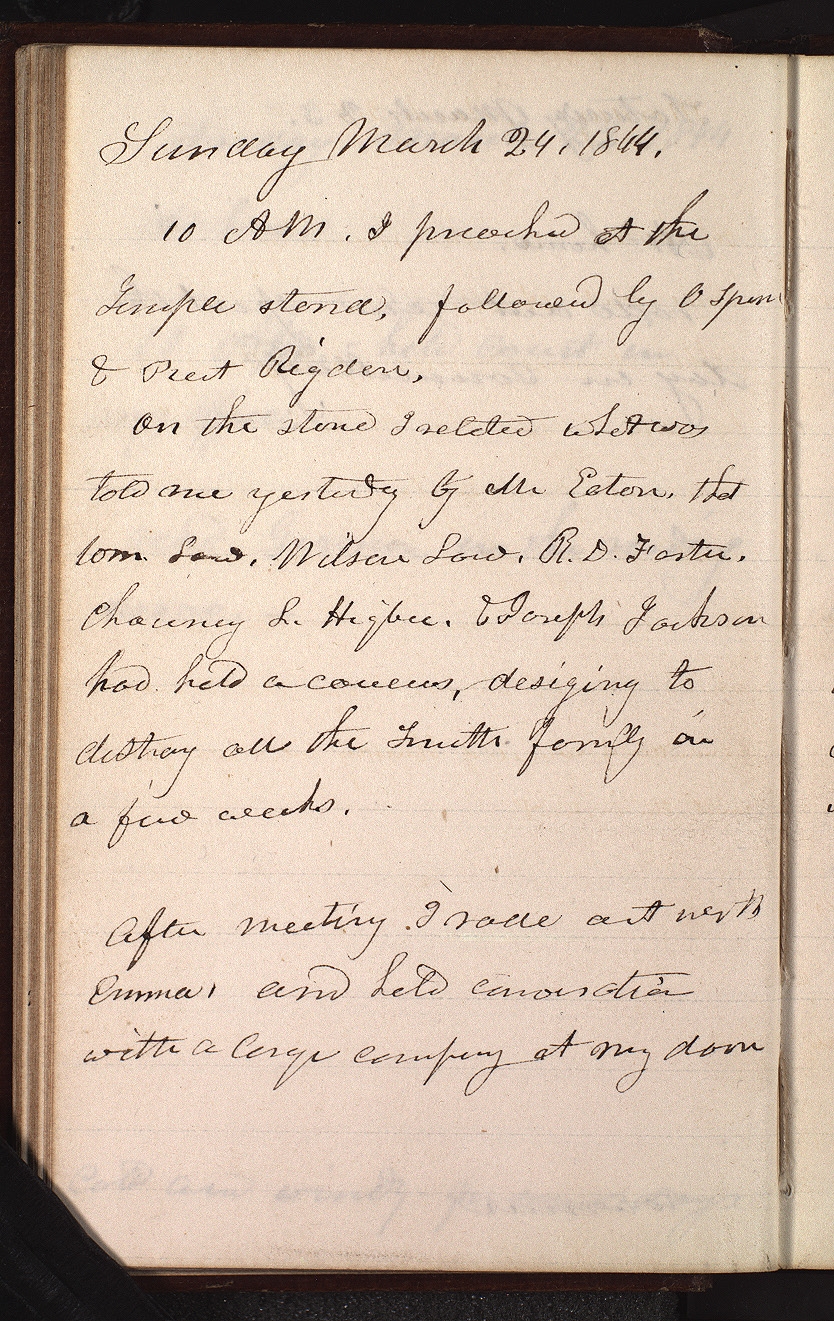 Sunday March 24, 1844.
10 A M. I preached at the
Temple stand, followed by O Spen
& Prest Rigdon,
On the stand I related what was
told me yesterday by Mr Eaton. that
Wm Law. Wilson Law. R. D. Foster.
Chauncy L. Higbee. & Joseph Jackson
had held a caucus, desiging to
destroy all the Smith family in
a few weeks.
After meeting I rode out with
Emma, and held conversation
with a large company at my door